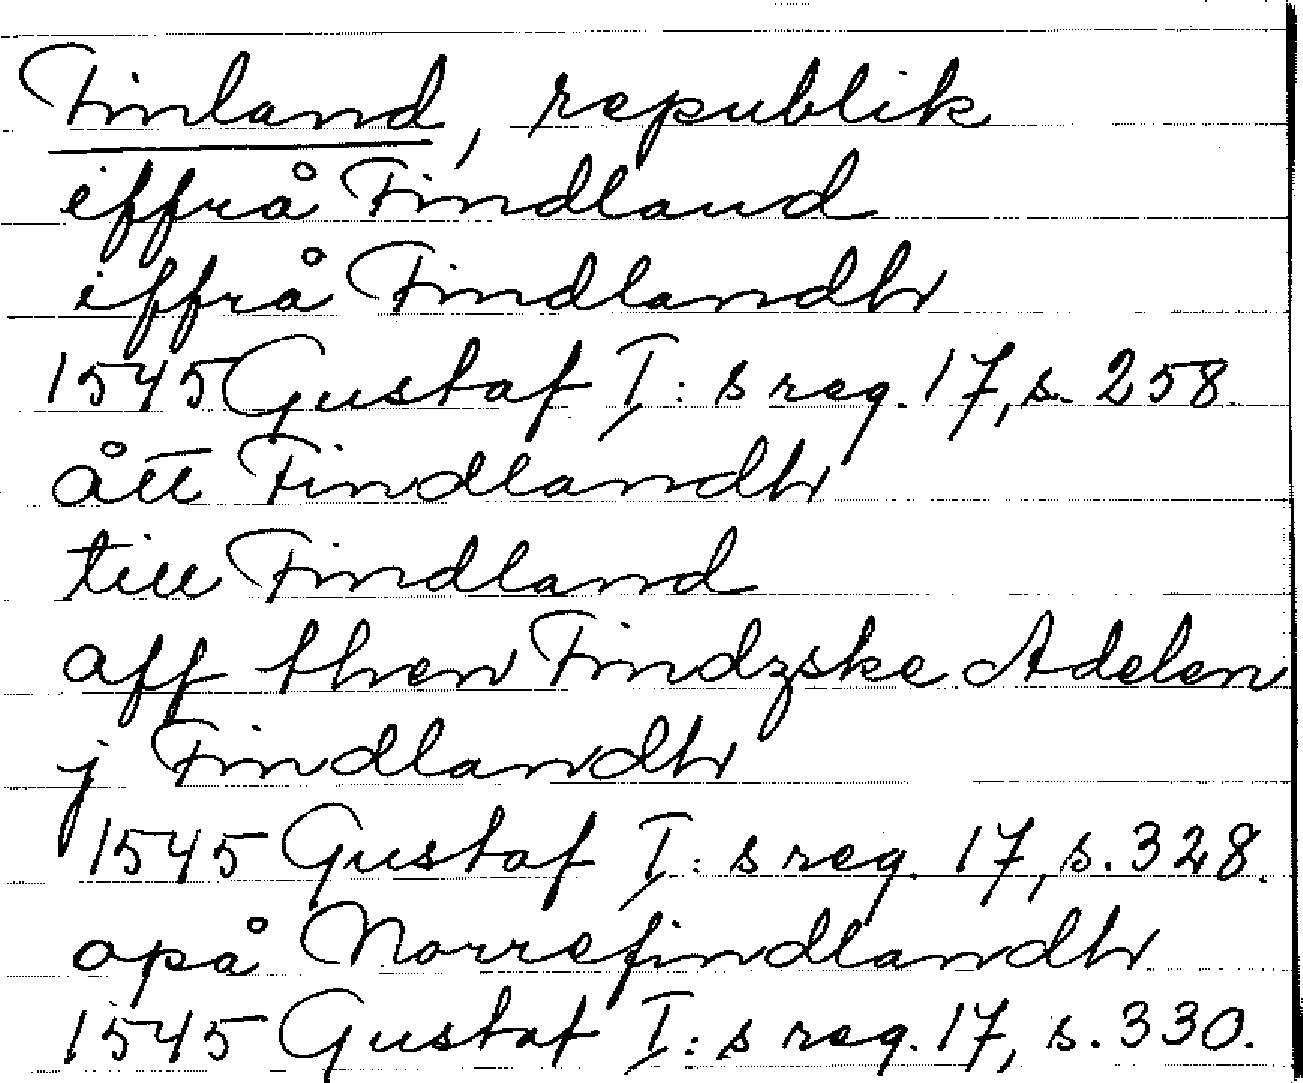 Finland, republik
iffrå Findland
iffrå Findlandh
1545 Gustaf I:s reg. 17, s. 258.
ått Findlandh
till Findland
aff then Findzske Adelen
j Findlandh
1545 Gustaf I:s reg. 17, s. 328.
opå Norrefindlandh
1545 Gustaf I:s reg. 17, s. 330.